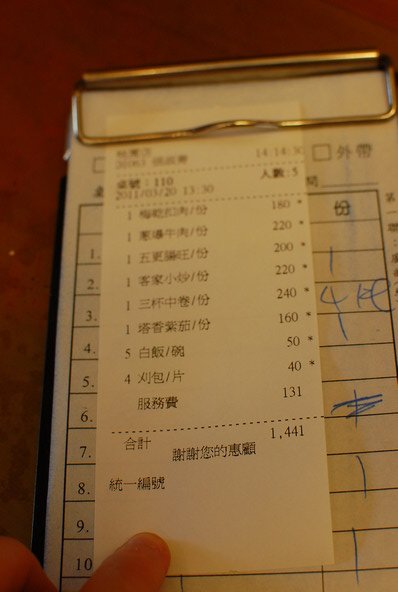 14:14:30
□ 外帶
桌號：110 人數:5
2011/03/20 13:30
份
1 梅乾扣肉/份 180 *
1 蔥爆牛肉/份 220 *
1 五更腸旺/份 200 *
1 客家小炒/份 220 *
1 三杯中卷/份 240 *
1 塔香紫茄/份 160 *
5 白飯/碗 50 *
4 刈包/片 40 *
服務費 131
合計 1,441
謝謝您的惠顧
統一編號
1.
2.
3.
4.
5.
6.
7.
8.
9.
10